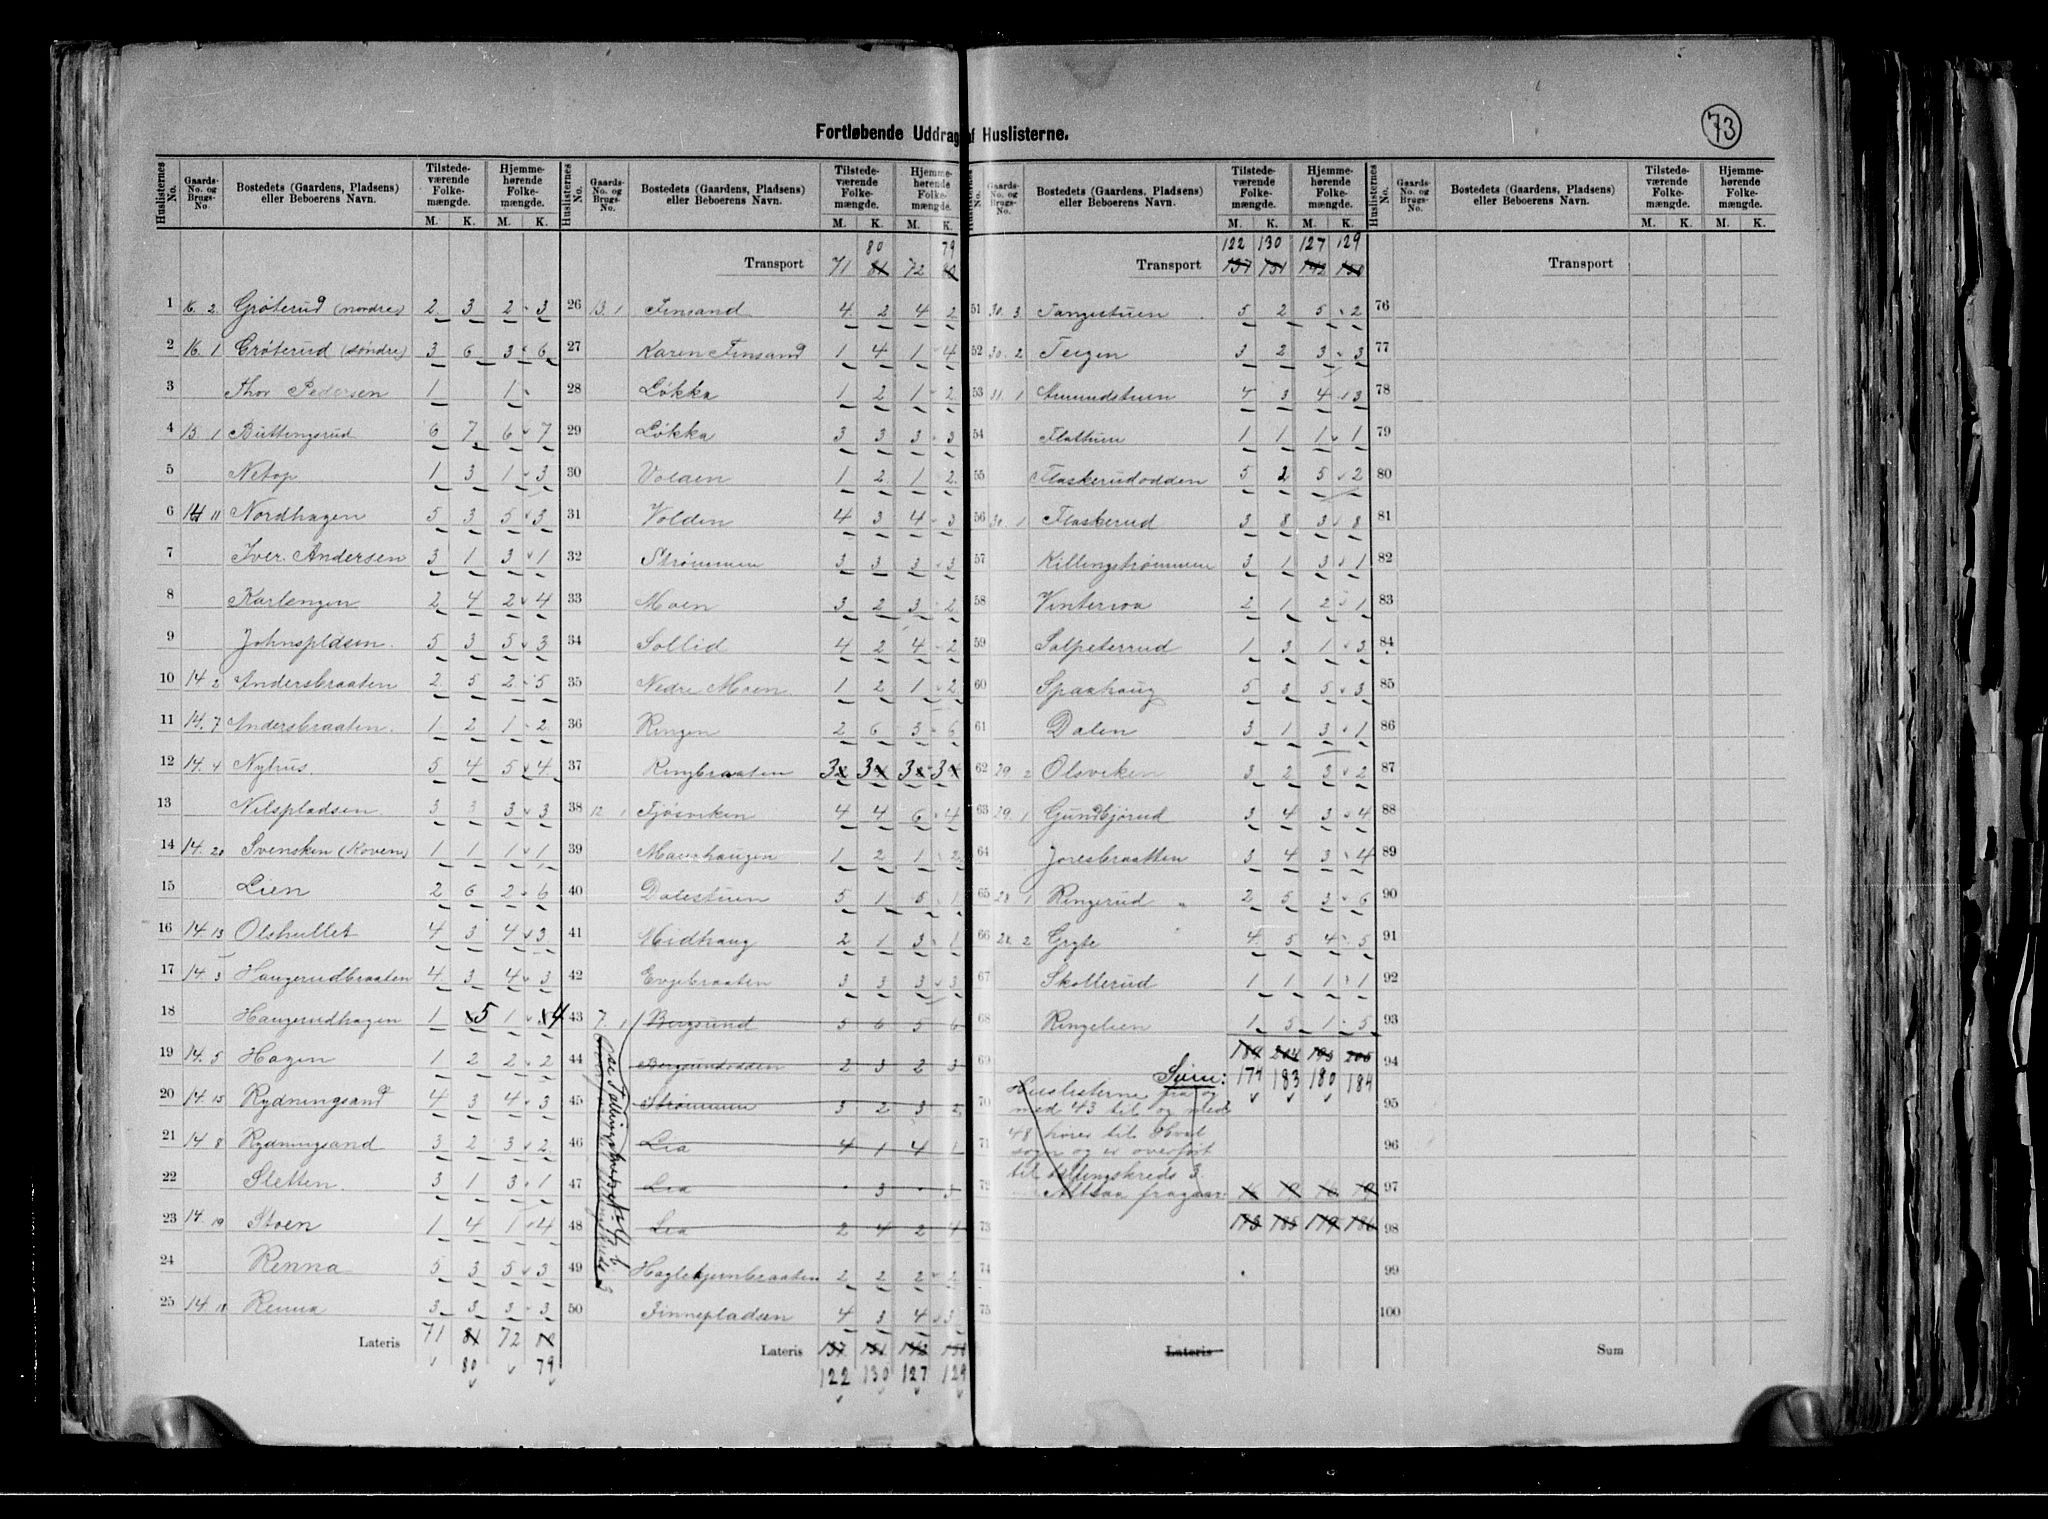 73
Fortløbende Uddrag af Huslisterne.
Huslisternes No. Gaards-No. og Brugs-No. Bostedets (Gaardens, Pladsen) eller Beboerens Navn. Tilstedeværende Folkemængde. M. K. Hjemmehørende Folkemængde. M. K.
1 16. 2. Grøterud (nordre) 2 3 2 3
2 16. 1 Grøterud (søndre) 3 6 3 6
3 Thor Pedersen 1 1
4 15. 1 Buttingsrud 6 7 6 7
5 Netop 1 3 1 3
6 14 11 Nordhagen 5 3 5 3
7 Iver Andersen 3 1 3 1
8 Karlengen 2 4 2 4
9 Johnspldsen 5 3 5 3
10 14. 2 Andersbraaten 2 5 2 5
11 14. 7 Andersbraaten 1 2 1 2
12 14. 4 Nyhus 5 4 5 4
13 Nilspladsen 3 3 3 3
14 14. 20 Svensken (Koven) 1 1 1 1
15 Lien 2 6 2 6
16 14. 13 Olshullet 4 3 4 3
17 14. 3 Haugerudbraaten 4 3 4 3
18 Haugerudhagen 1 5 1 4
19 14. 5 Hagen 1 2 2 2
20 14. 15 Rydningsand 4 3 4 3
21 14. 8 Rydningsand 3 2 3 2
22 Sletten 3 1 3 1
23 14. 19 Stoen 1 4 1 4
24 Renna 5 3 5 3
25 14. 18 Renna 3 3 3 3
Lateris 71 81 72 80
80 79
80 79
Transport 71 81 72 80
26 13. 1 Finsand 4 2 4 2
27 Karen Finsand 1 4 1 4
28 Løkka 1 2 1 2
29 Løkka 3 3 3 3
30 Volden 1 2 1 2
31 Volden 4 3 4 3
32 Strømmen 3 3 3 3
33 Moen 3 2 3 2
34 Sollid 4 2 4 2
35 Nedre Moen 1 2 1 2
36 Ringen 2 6 3 6
37 Ringbraaten 3 3 3 3
38 12. 1 Tjøsviken 4 4 6 4
39 Maurhaugen 1 2 1 2
40 Dalestuen 5 1 5 1
41 Midhaug 2 1 3 1
42 Evjebraaten 3 3 3 3
43 7. 1 Bergsund 5 6 5 6
44 Bergsundodden 2 3 2 3
45 Strømmen 3 2 3 2
46 Lia 4 1 4 1
47 Lia 3 3
48 Lia 2 4 2 4
49 Haglekjernbraaten 2 2 2 2
50 Finnepladsen 4 3 4 3
Lateris 137 151 142 150
122 130 127 129
122 130 127 129
Transport 137 151 142 150
51 30. 3 Tangestuen 5 2 5 2
52 30. 2 Teigen 3 2 3 3
53 31. 1 Amundstuen 4 3 4 3
54 Flattum 1 1 1 1
55 Flaskerudodden 5 2 5 2
56 30. 1 Flaskerud 3 8 3 8
57 Killingstrømmen 3 1 3 1
58 Vinterroa 2 1 2 1
59 Salpeterrud 1 3 1 3
60 Spaahaug 5 3 5 3
61 Dalen 3 1 3 1
62 29. 2 Olsviken 3 2 3 2
63 29. 1 Gundbjørud 3 4 3 4
64 Joresbraatten 3 4 3 4
65 28 1 Ringerud 2 5 3 6
66 28. 2 Gryte 4 5 4 5
67 Skollerud 1 1 1 1
68 Ringelien 1 5 1 5
69 189 204 195 205
Sum: 174 183 180 184
70 Huslisterne fra og
med 43 til og med
71 48 hører til Hval
sogn og er overført
til tellingskreds 3
72 Altsaa fragaar: 16 19 16 19
73 173 185 179 186
74
75
Lateris
Transport
76
77
78
79
80
81
82
83
84
85
86
87
88
89
90
91
92
93
94
95
96
97
98
99
100
Sum